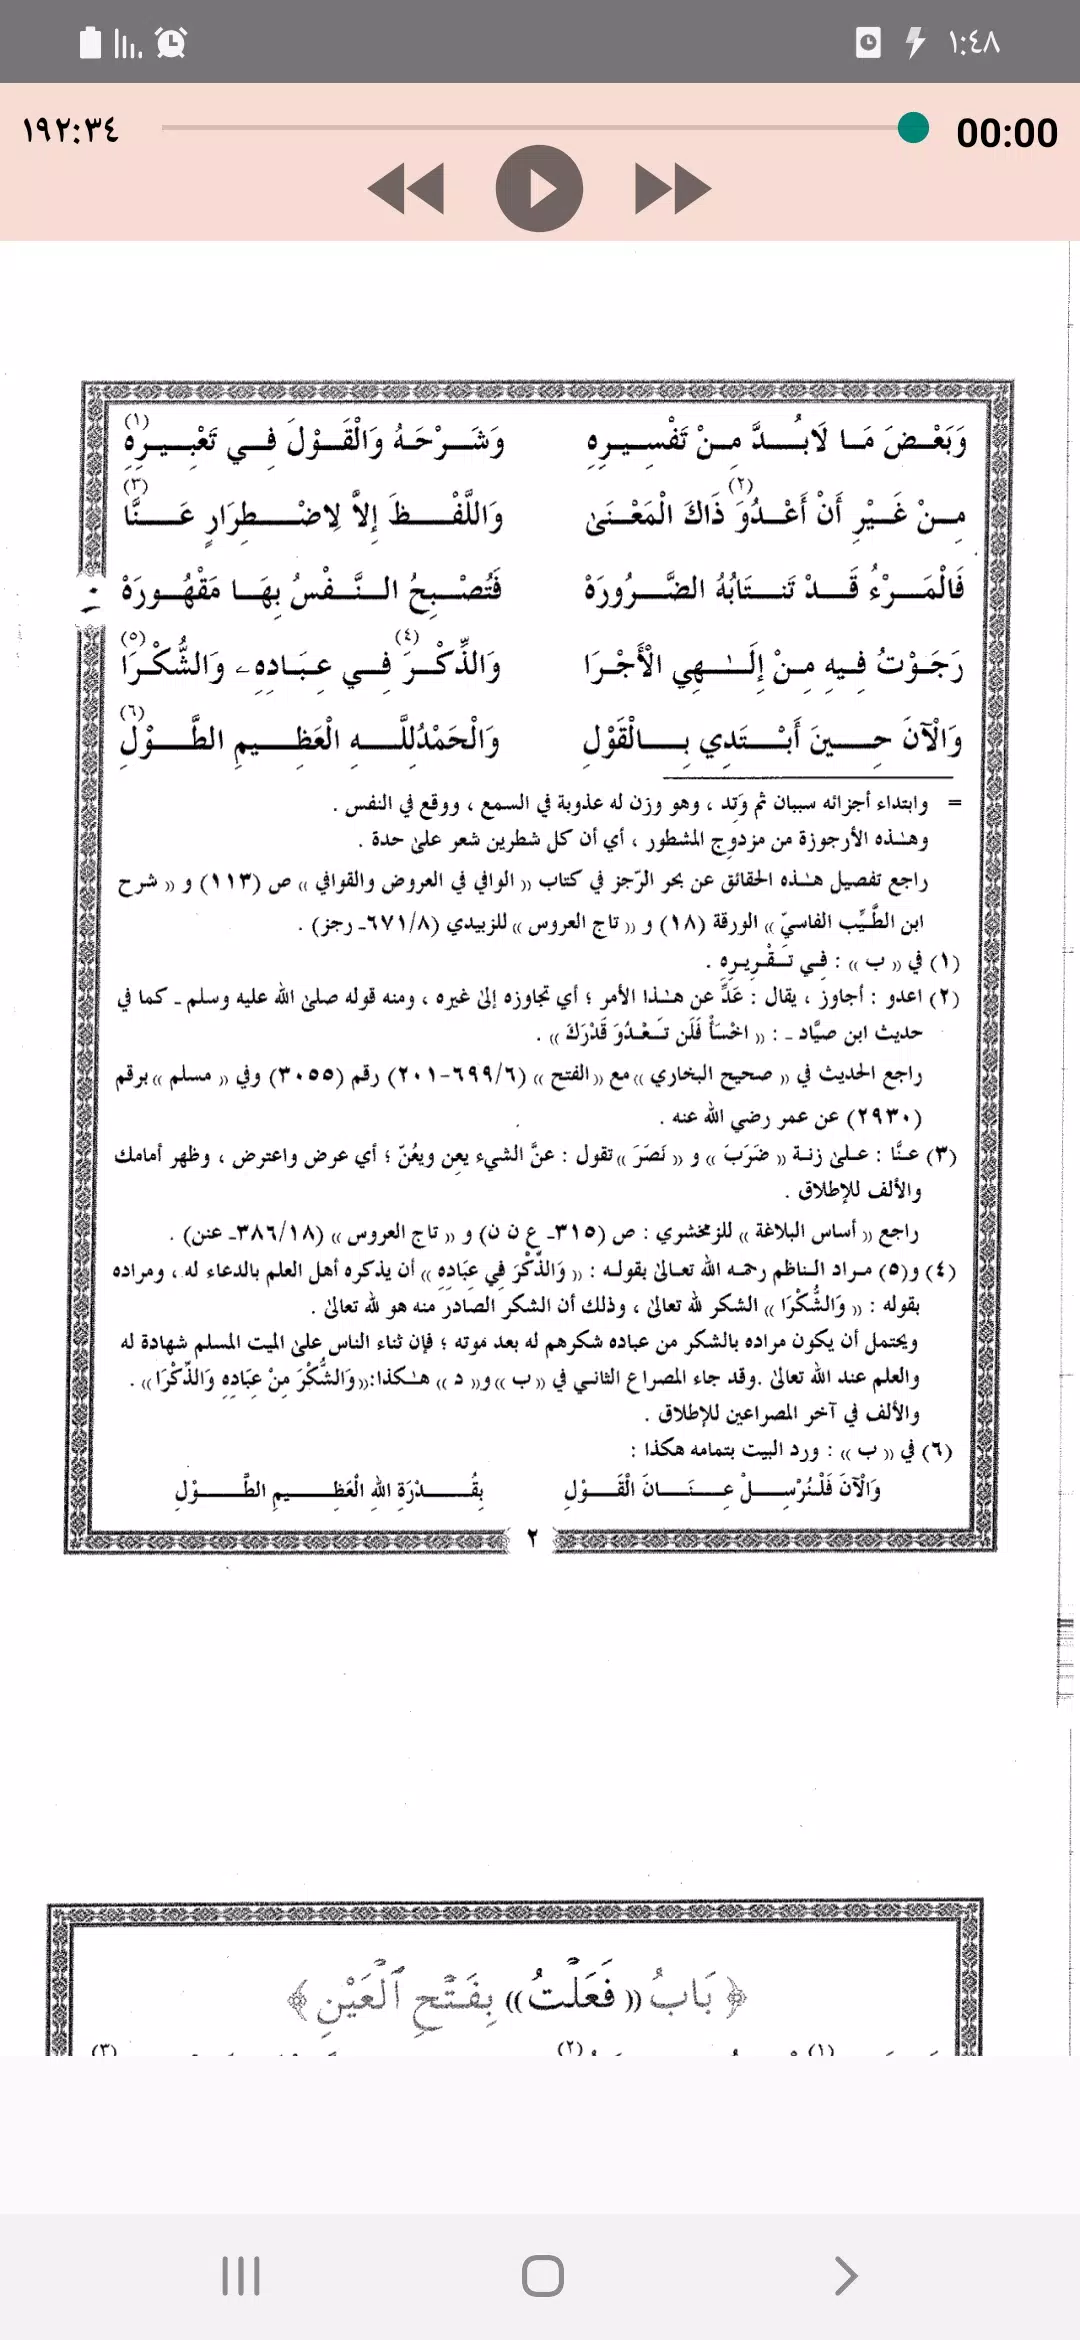 ١:٤٨
١٩٢:٣٤
00:00
وَبَعْضَ مَا لَابُدَّ مِنْ تَفْسِيرِهِ وَشَرْحَهُ وَالْقَوْلَ فِي تَعْبِيرِهِ (١)
مِنْ غَيْرِ أَنْ أَعْدُوَ (٢) ذَاكَ الْمَعْنَىٰ وَاللَّفْظَ إِلاَّ لِاضْطِرَارٍ عَنَّا (٣)
فَالْمَرْءُ قَدْ تَنتَابُهُ الضَّرُورَهْ فَتُصْبِحُ النَّفْسُ بِهَا مَقْهُورَهْ
رَجَوْتُ فِيهِ مِنْ إِلَـٰهِي الْأَجْرَا وَالذِّكْرَ (٤) فِي عِبَادِهِ وَالشُّكْرَا (٥)
وَالْآنَ حِينَ أَبْتَدِي بِالْقَوْلِ وَالْحَمْدُلِلَّهِ الْعَظِيمِ الطَّوْلِ (٦)
= وابتداء أجزائه سببان ثم وَتِد ، وهو وزن له عذوبة في السمع ، ووقع في النفس .
وهـٰذه الأرجوزة من مزدوج المشطور ، أي أن كل شطرين شعر علىٰ حدة .
راجع تفصيل هـٰذه الحقائق عن بحر الرّجز في كتاب (( الوافي في العروض والقوافي )) ص (١١٣) و (( شرح
ابن الطَّيِّب الفاسيّ )) الورقة (١٨) و (( تاج العروس )) للزبيدي (٦٧١/٨ـ رجز) .
(١) في (( ب )) : فِي تَقْرِيرِهِ .
(٢) اعدو : أجاوز ، يقال : عَدِّ عن هـٰذا الأمر ؛ أي تجاوزه إلىٰ غيره ، ومنه قوله صلىٰ الله عليه وسلم ـ كما في
حديث ابن صيَّاد ـ : (( اخْسَأْ فَلَن تَعْدُوَ قَدْرَكَ )) .
راجع الحديث في (( صحيح البخاري )) مع (( الفتح )) (٦٩٩/٦-٢٠١) رقم (٣٠٥٥) وفي (( مسلم )) برقم
(٢٩٣٠) عن عمر رضي الله عنه .
(٣) عنَّا : علىٰ زنة (( ضَرَبَ )) و (( نَصَرَ )) تقول : عنَّ الشيء يعِن ويعُنّ ؛ أي عرض واعترض ، وظهر أمامك
والألف للإطلاق .
راجع (( أساس البلاغة )) للزمخشري : ص (٣١٥ـ ع ن ن) و (( تاج العروس )) (٣٨٦/١٨ـ عنن) .
(٤) و(٥) مراد الناظم رحمه الله تعالىٰ بقوله : (( وَالذِّكْرَ فِي عِبَادِهِ )) أن يذكره أهل العلم بالدعاء له ، ومراده
بقوله : (( وَالشُّكْرَا )) الشكر لله تعالىٰ ، وذلك أن الشكر الصادر منه هو لله تعالىٰ .
ويحتمل أن يكون مراده بالشكر من عباده شكرهم له بعد موته ؛ فإن ثناء الناس علىٰ الميت المسلم شهادة له
والعلم عند الله تعالىٰ . وقد جاء المصراع الثاني في (( ب )) و(( د )) هـٰكذا: (( وَالشُّكْرَ مِنْ عِبَادِهِ وَالذِّكْرَا )) .
والألف في آخر المصراعين للإطلاق .
(٦) في (( ب )) : ورد البيت بتمامه هكذا :
وَالْآنَ فَلْنُرْسِلْ عِنَانَ الْقَوْلِ بِقُدْرَةِ اللهِ الْعَظِيمِ الطَّوْلِ
٢
﴿ بَابُ (( فَعَلْتُ )) بِفَتْحِ الْعَيْنِ ﴾
(١) (٢) (٣)